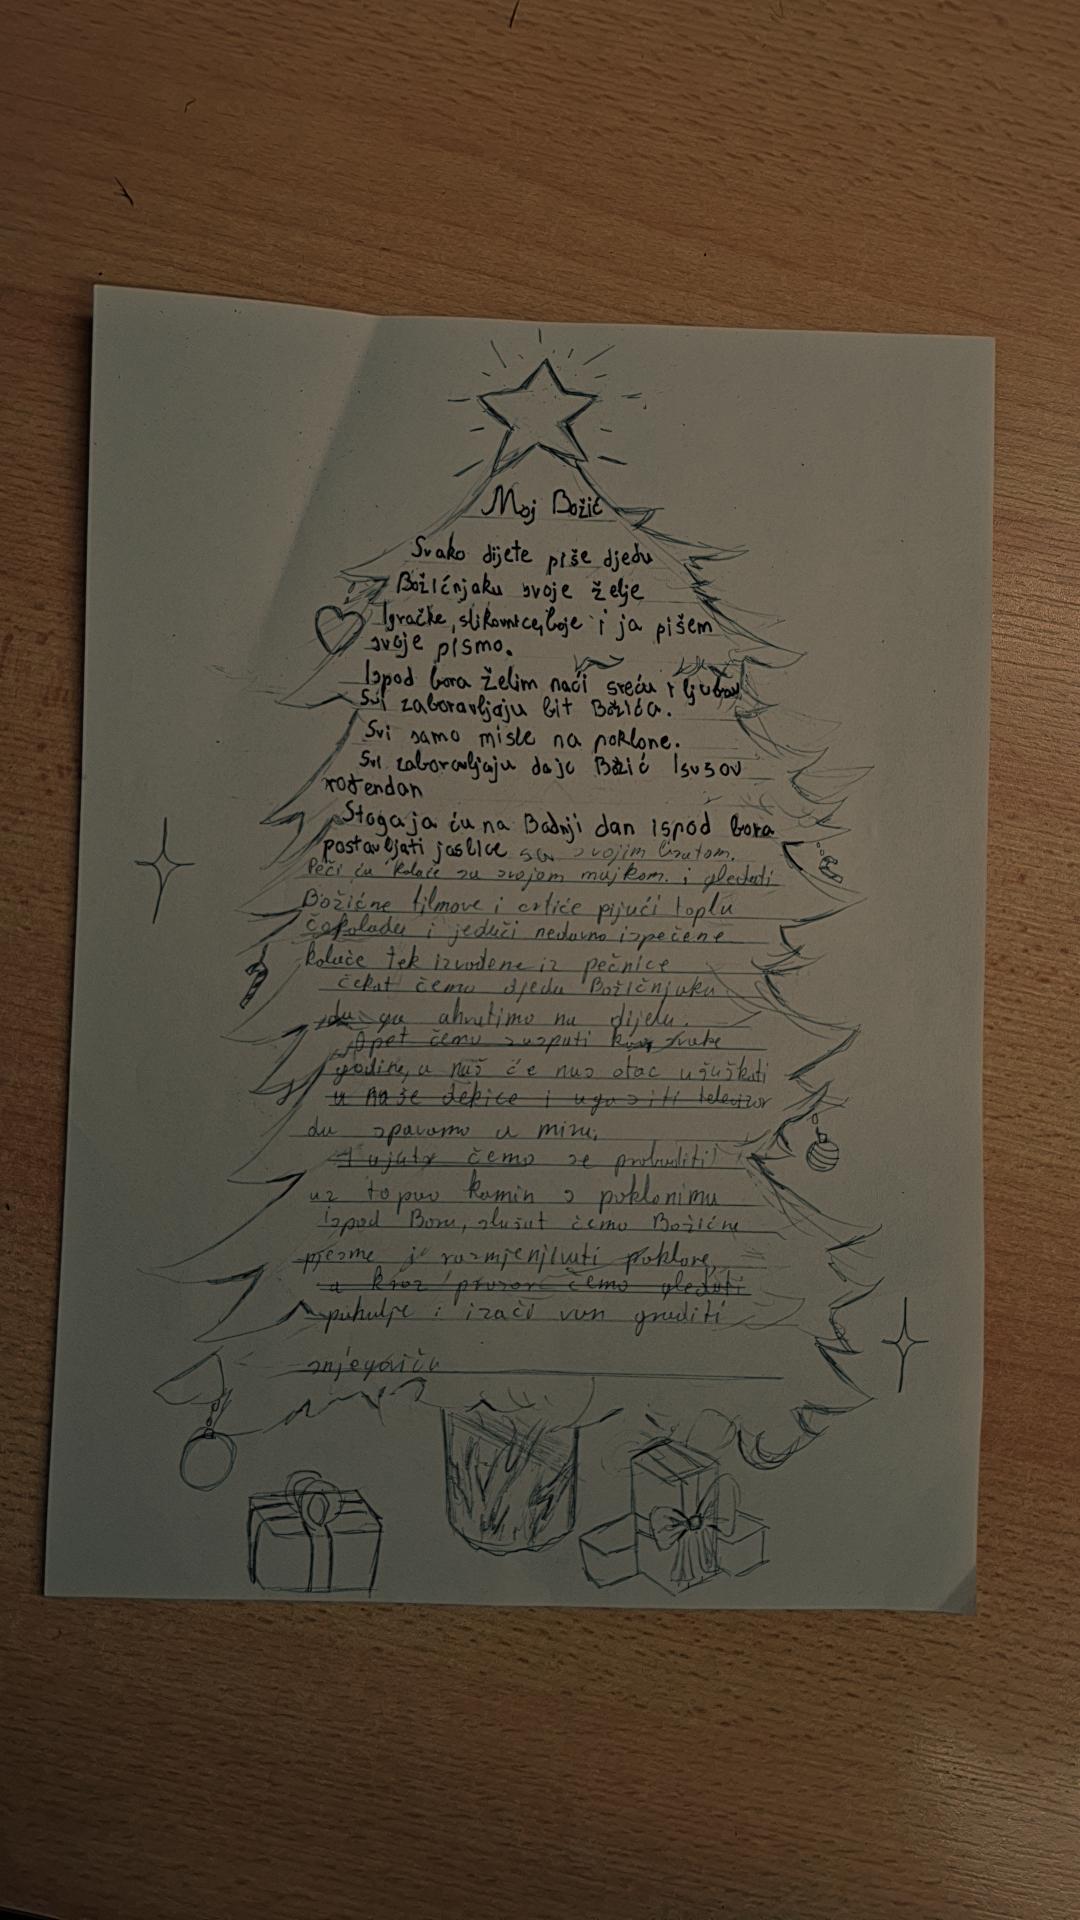 Moj Božić
Svako dijete piše djedu
Božićnjaku svoje želje
Igračke, slikovnice, boje i ja pišem
svoje pismo.
Ispod bora želim naći sreću i ljubav
Svi zaboravljaju bit Božića.
Svi samo misle na poklone.
Svi zaboravljaju da je Božić Isusov
rođendan
Stoga ja ću na Badnji dan ispod bora
postavljati jaslice sa svojim bratom.
Peči ću kolače sa svojom majkom. i gledati
Božićne filmove i crtiće pijući toplu
čokoladu i jedući nedavno ispečene
kolače tek izvađene iz pečnice
čekat čemo djeda Božičnjaka
da ga uhvatimo na dijelu.
Opet čemo zaspati kao svake
godine, a naš će nas otac ušuškati
u naše dekice i ugasiti televizor
da spavamo u miru.
Ujutr čemo se probuditi
uz topao kamin s poklonima
ispod Bora, slušat čemo Božićne
pjesme i razmjenjivati poklone,
a kroz prozor čemo gledati
pahulje i izaći van graditi
snjegoviča